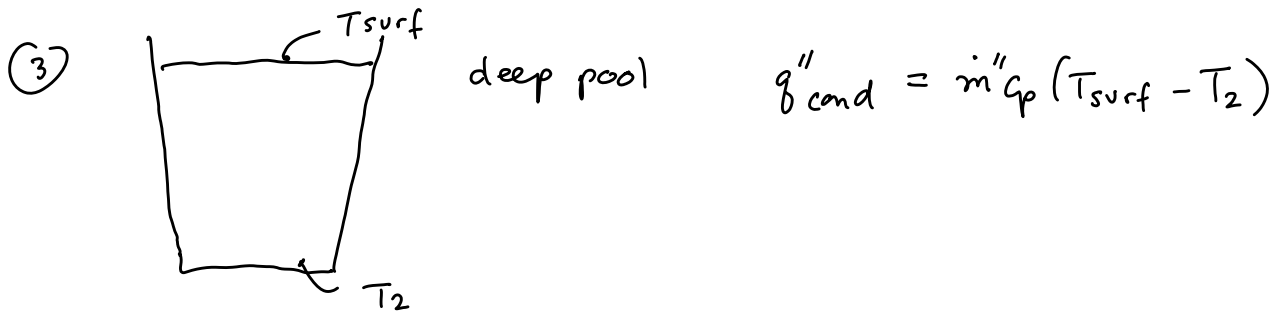 ③
Tsurf
deep pool
q̇″cond = ṁ″Cp(Tsurf - T2)
T2